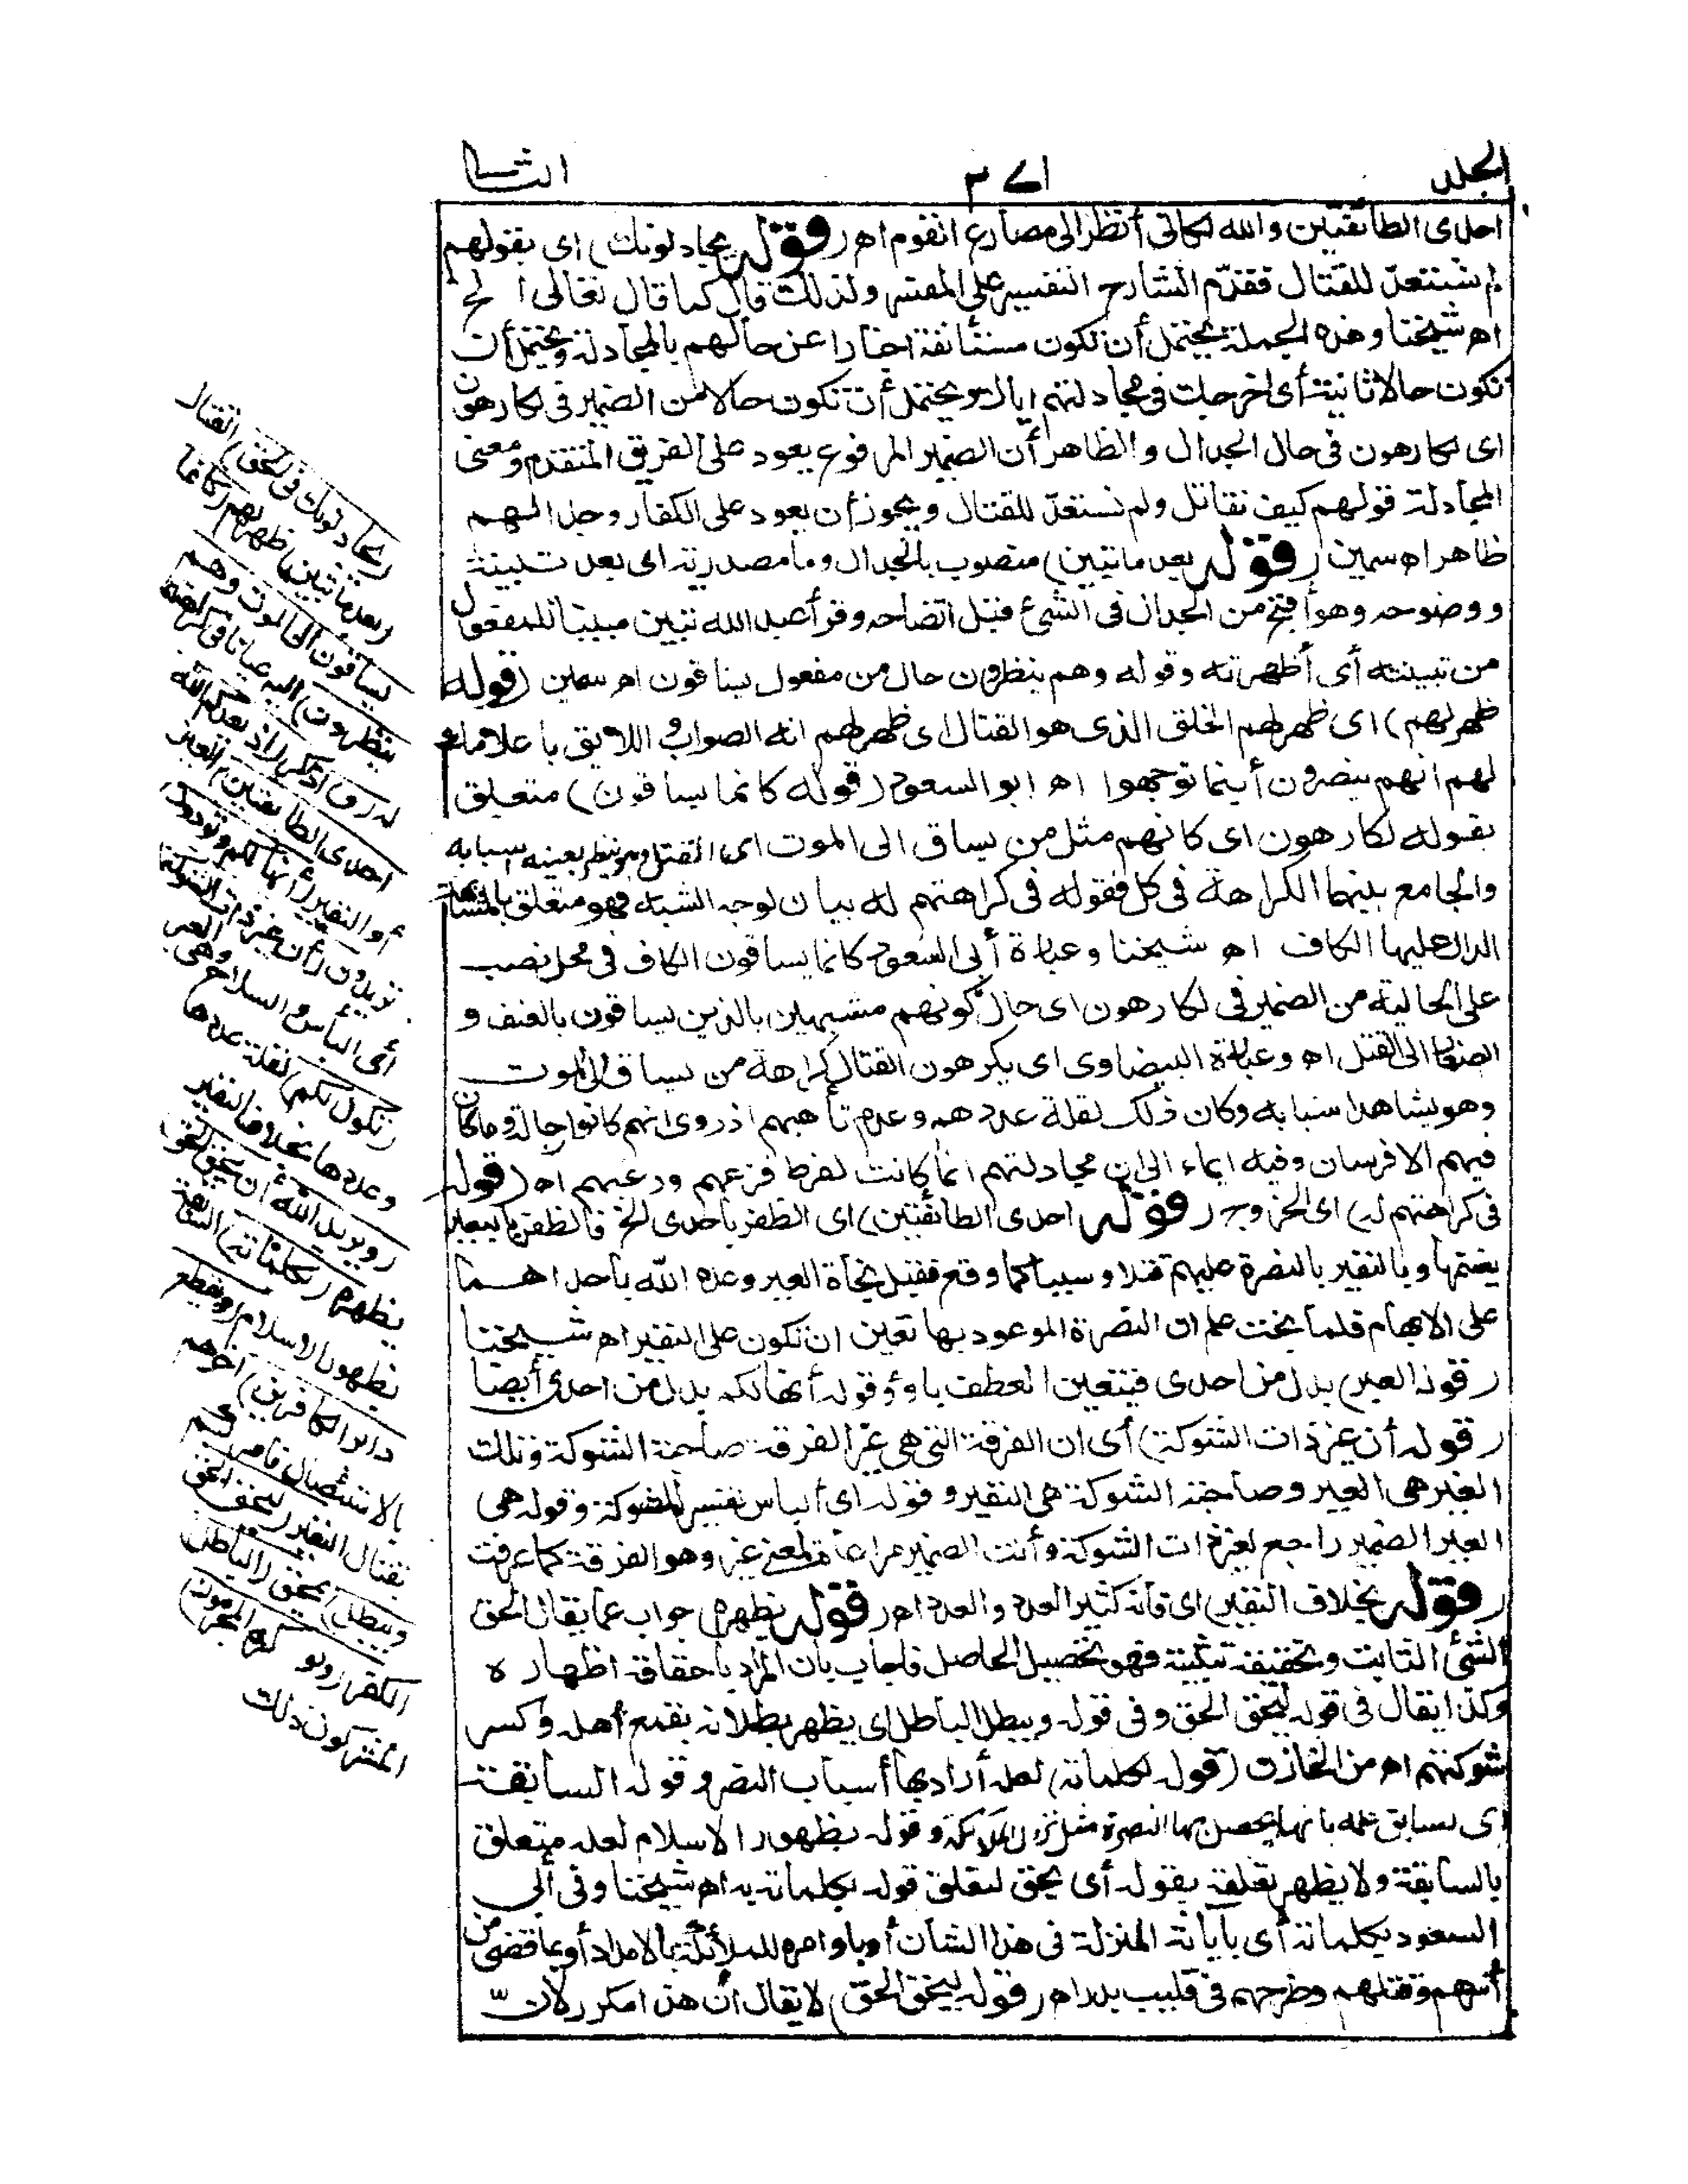 الجلد
الثانى
احدى الطائفتين والله لكانى أنظر الى مصارع القوم اه (قوله يجادلونك) اى بقولهم
لم نستعدّ للقتال فقدّم الشارح التفسير على المفسر ولذلك قال كما قال تعالى الخ
اه شيخنا وهذه الجملة يحتمل أن تكون مستأنفة اخبارا عن حالهم بالمجادلة ويحتمل أن
تكون حالا ثانية أى اخرجك فى مجادلتهم اياك ويحتمل أن تكون حالا من الضمير فى لكارهون
اى لكارهون فى حال الجدال والظاهر أن الضمير المرفوع يعود على الفريق المتقدم ومعنى
المجادلة قولهم كيف نقاتل ولم نستعدّ للقتال ويجوز أن يعود على الكفار وجدالهم
ظاهر اه سمين (قوله بعد ما تبين) منصوب بالجدال وما مصدرية اى بعد تبينه
ووضوحه وهو أقبح من الجدال فى الشئ قبل اتضاحه وقرأ عبد الله تبين مبنيا للمفعول
من تبينته أى أظهرته وقوله وهم ينظرون حال من مفعول يساقون اه سمين (قوله
ظهر لهم) اى ظهر لهم الحق الذى هو القتال اى ظهر لهم انه الصواب واللايق باعلامك
لهم انهم ينصرون أينما توجهوا اه ابو السعود (قوله كانما يساقون) متعلق
بقوله لكارهون اى كانهم مثل من يساق الى الموت اى القتل وهو ينظر بعينه اسبابه
والجامع بينهما الكراهة فى كل فقوله فى كراهتهم له بيان لوجه الشبه فهو متعلق بالمشابهة
الدال عليها الكاف اه شيخنا وعبارة أبى السعود كانما يساقون الكاف فى محل نصب
على الحالية من الضمير فى لكارهون اى حال كونهم مشبهين بالذين يساقون بالعنف و
الصغار الى القتل اه وعبارة البيضاوى اى يكرهون القتال كراهة من يساق الى الموت
وهو يشاهد اسبابه وكان ذلك لقلة عددهم وعدم تأهبهم اذ روى انهم كانوا رجالة وما كان
فيهم الا فرسان وفيه ايماء الى ان مجادلتهم انما كانت لفرط فزعهم ورعبهم اه (قوله
فى كراهتهم له) اى الخروج (قوله احدى الطائفتين) اى الظفر باحدى الخ فالظفر بالعير
يغنمها وبالنفير بالنصرة عليهم قتلا وسبيا كما وقع فقبل نجاة العير وعده الله باحداهما
على الابهام فلما نجت علم ان النصرة الموعود بها تعين ان تكون على النفير اه شيخنا
(قوله العير) بدل من احدى فيتعين العطف باو وقوله أنها لكم بدل من احدى أيضا
(قوله أن غير ذات الشوكة) أى ان الفرقة التى هى غير الفرقة صاحبة الشوكة وتلك
الغير هى العير وصاحبة الشوكة هى النفير وقوله اى البأس تفسير للشوكة وقوله هى
العير الضمير راجع لغير ذات الشوكة وأنث الضمير مراعاة لمعنى غير وهو الفرقة كما عرفت
(قوله بخلاف النفير) اى فانه كثير العدد والعدد اه (قوله يظهره) جواب عما يقال الحق
الشئ الثابت وتحقيقه تثبيته فهو تحصيل الحاصل فاجاب بان المراد باحقاقه اظهاره
وكذا يقال فى قوله ليحق الحق وفى قوله ويبطل الباطل اى يظهر بطلانه بقمع أهله وكسر
شوكتهم اه من الخازن (قوله بكلماته) لعله أراد بها أسباب النصر وقوله السابقة
اى لسابق علمه بانها يحصل بها النصرة مثل نزول الملائكة وقوله بظهور الاسلام لعله متعلق
بالسابقة ولا يظهر تعلقه بقوله أى يحق لتعلق قوله بكلماته به اه شيخنا وفى أبى
السعود بكلماته أى بآياته المنزلة فى هذا الشان أو باوامره للملائكة بالامداد أو بما قضى من
أسرهم وقتلهم وطرحهم فى قليب بدر اه (قوله ليحق الحق) لا يقال ان هذا مكرر لان
(يجادلونك فى الحق) القتال
(بعد ما تبين) ظهر لهم (كانما
يساقون الى الموت وهم
ينظرون) اليه عيانا فى كراهتهم
له (و) اذكر (اذ يعدكم الله
احدى الطائفتين) العير
أو النفير (أنها لكم وتودون)
تريدون (أن غير ذات الشوكة)
أى البأس والسلاح وهى العير
(تكون لكم) لقلة عددها
وعددها بخلاف النفير
(ويريد الله أن يحق الحق)
يظهره (بكلماته) السابقة
بظهور الاسلام (ويقطع
دابر الكافرين) آخرهم
بالاستئصال فامركم
بقتال النفير (ليحق الحق
ويبطل) يمحق (الباطل)
الكفر (ولو كره المجرمون)
المشركون ذلك